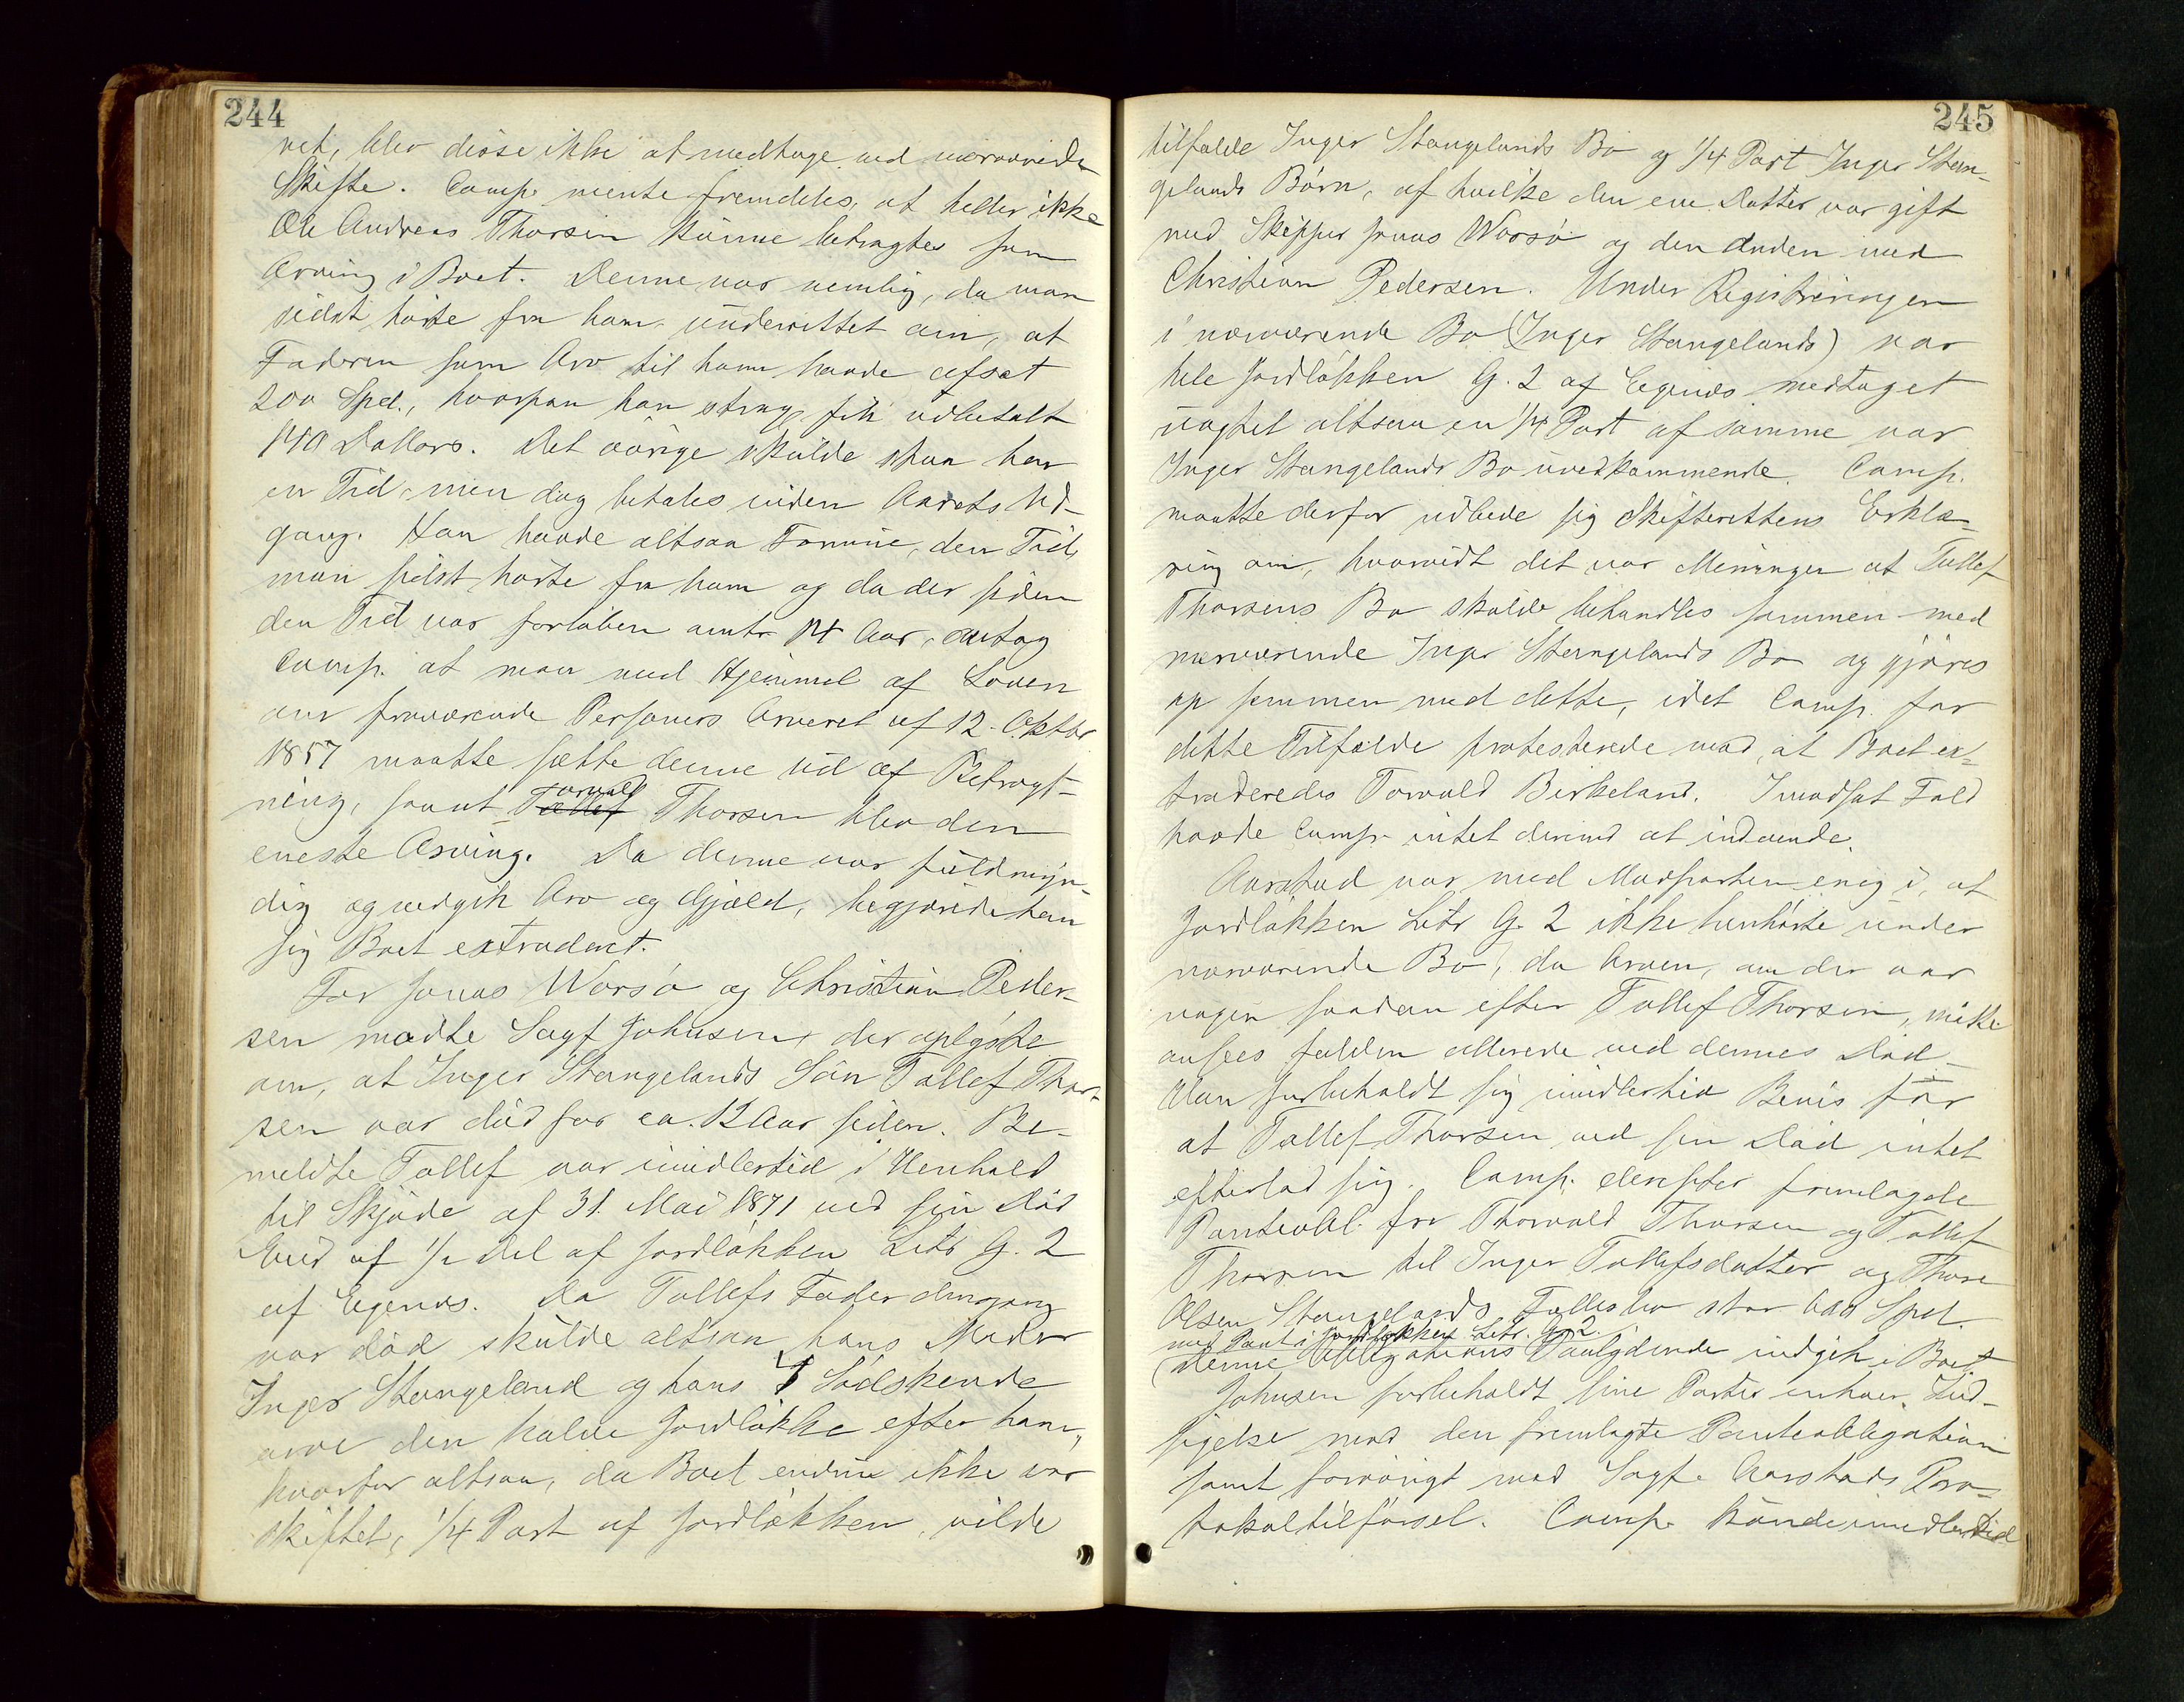 244
ret, blev disse ikke at medtage ved nærværende
Skifte. Comp. mente fremdeles, at heller ikke
Ole Andreas Thorsen kunne betragtes som
Arving i Boet. Denne var nemlig, da man
sidst hørte fra ham underrettet om, at
Faderen som Arv til ham havde afsat
200 Spd., hvorpaa han strax fik udbetalt
140 Dollars. Det øvrige skulde staa hen
en Tid, men dog betales inden Aarets Ud-
gang. Han havde altsaa Formue, den Tid,
man sidst hørte fra ham og da der siden
den Tid var forløben omtr. 14 Aar, antog
Comp. at man med Hjemmel af Loven
om fraværende Personers Arveret af 12. Oktbr
1857 maatte sætte denne ud af Betragt-
ning, saant Torvald Thorsen blev den
eneste Arving. Da denne var fuldmyn-
dig og vedgik Arv og Gjæld, begjærede han
sig Boet extraderet.
For Jonas Worsø og Christian Peder-
sen mødte Sagf Johnsen, der oplyste
om, at Inger Stangelands Søn Tollef Thor-
sen var død for ca. 12 Aar siden. Be-
meldte Tollef var imidlertid i Henhold
til Skjøde af 31. Mai 1871 ved sin Død
Eier af 1/2 Del af Jordløkken Litr G. 2
af Egenæs. Da Tollefs Fader dengang
var død skulde altsaa hans Moder
Inger Stangeland og hans Sødskende
arve den halve Jordløkke efter ham,
hvorfor altsaa, da Boet endnu ikke var
skiftet, 1/4 Part af Jordløkken vilde
245
tilfalde Inger Stangelands Bo og 1/4 Part Inger Stan-
gelands Børn, af hvilke den ene Datter var gift
med Skipper Jonas Worsø og den anden med
Christian Pedersen. Under Registreringen
i nærværende Bo (Inger Stangelands) var
hele Jordløkken G. 2 af Egenæs medtaget
uagtet altsaa en 1/4 Part af samme var
Inger Stangelands Bo uvedkommende. Comp.
maatte derfor udbede sig Skifterettens Erklæ-
ring om, hvorvidt det var Meningen at Tollef
Thorsens Bo skulde behandles sammen med
nærværende Inger Stangelands Bo og gjøres
op sammen med dette, idet Comp. for
dette Tilfælde protesterede mod, at Boet ex-
traderedes Torvald Birkeland. I modsat Fald
havde Comp. intet derimod at indvende.
Aarstad var med Modparten enig i, at
Jordløkken Litr G. 2 ikke henhørte under
nærværende Bo, da Arven, om der var
nogen saadan efter Tollef Thorsen, maatte
ansees falden allerede ved dennes Død.
Han forbeholdt sig imidlertid Bevis for
at Tollef Thorsen ved sin Død intet
efterlod sig. Comp. derefter fremlagde
Panteobl. fra Thorvald Thorsen og Tollef
Thorsen til Inger Tollefsdatter og Thore
Olsen Stangelands Fællesbo stor 600 Spd.
med Pant i Jordløkken Litr. G. 2.
(Denne Obligations Paalydende indgik i Boet
Johnsen forbeholdt sine Parter enhver Ind-
sigelse mod den fremlagte Panteobligation
samt forøvrigt mod Sagf. Aarstads Pro-
tokoltilførsel. Comp. kunde imidlertid